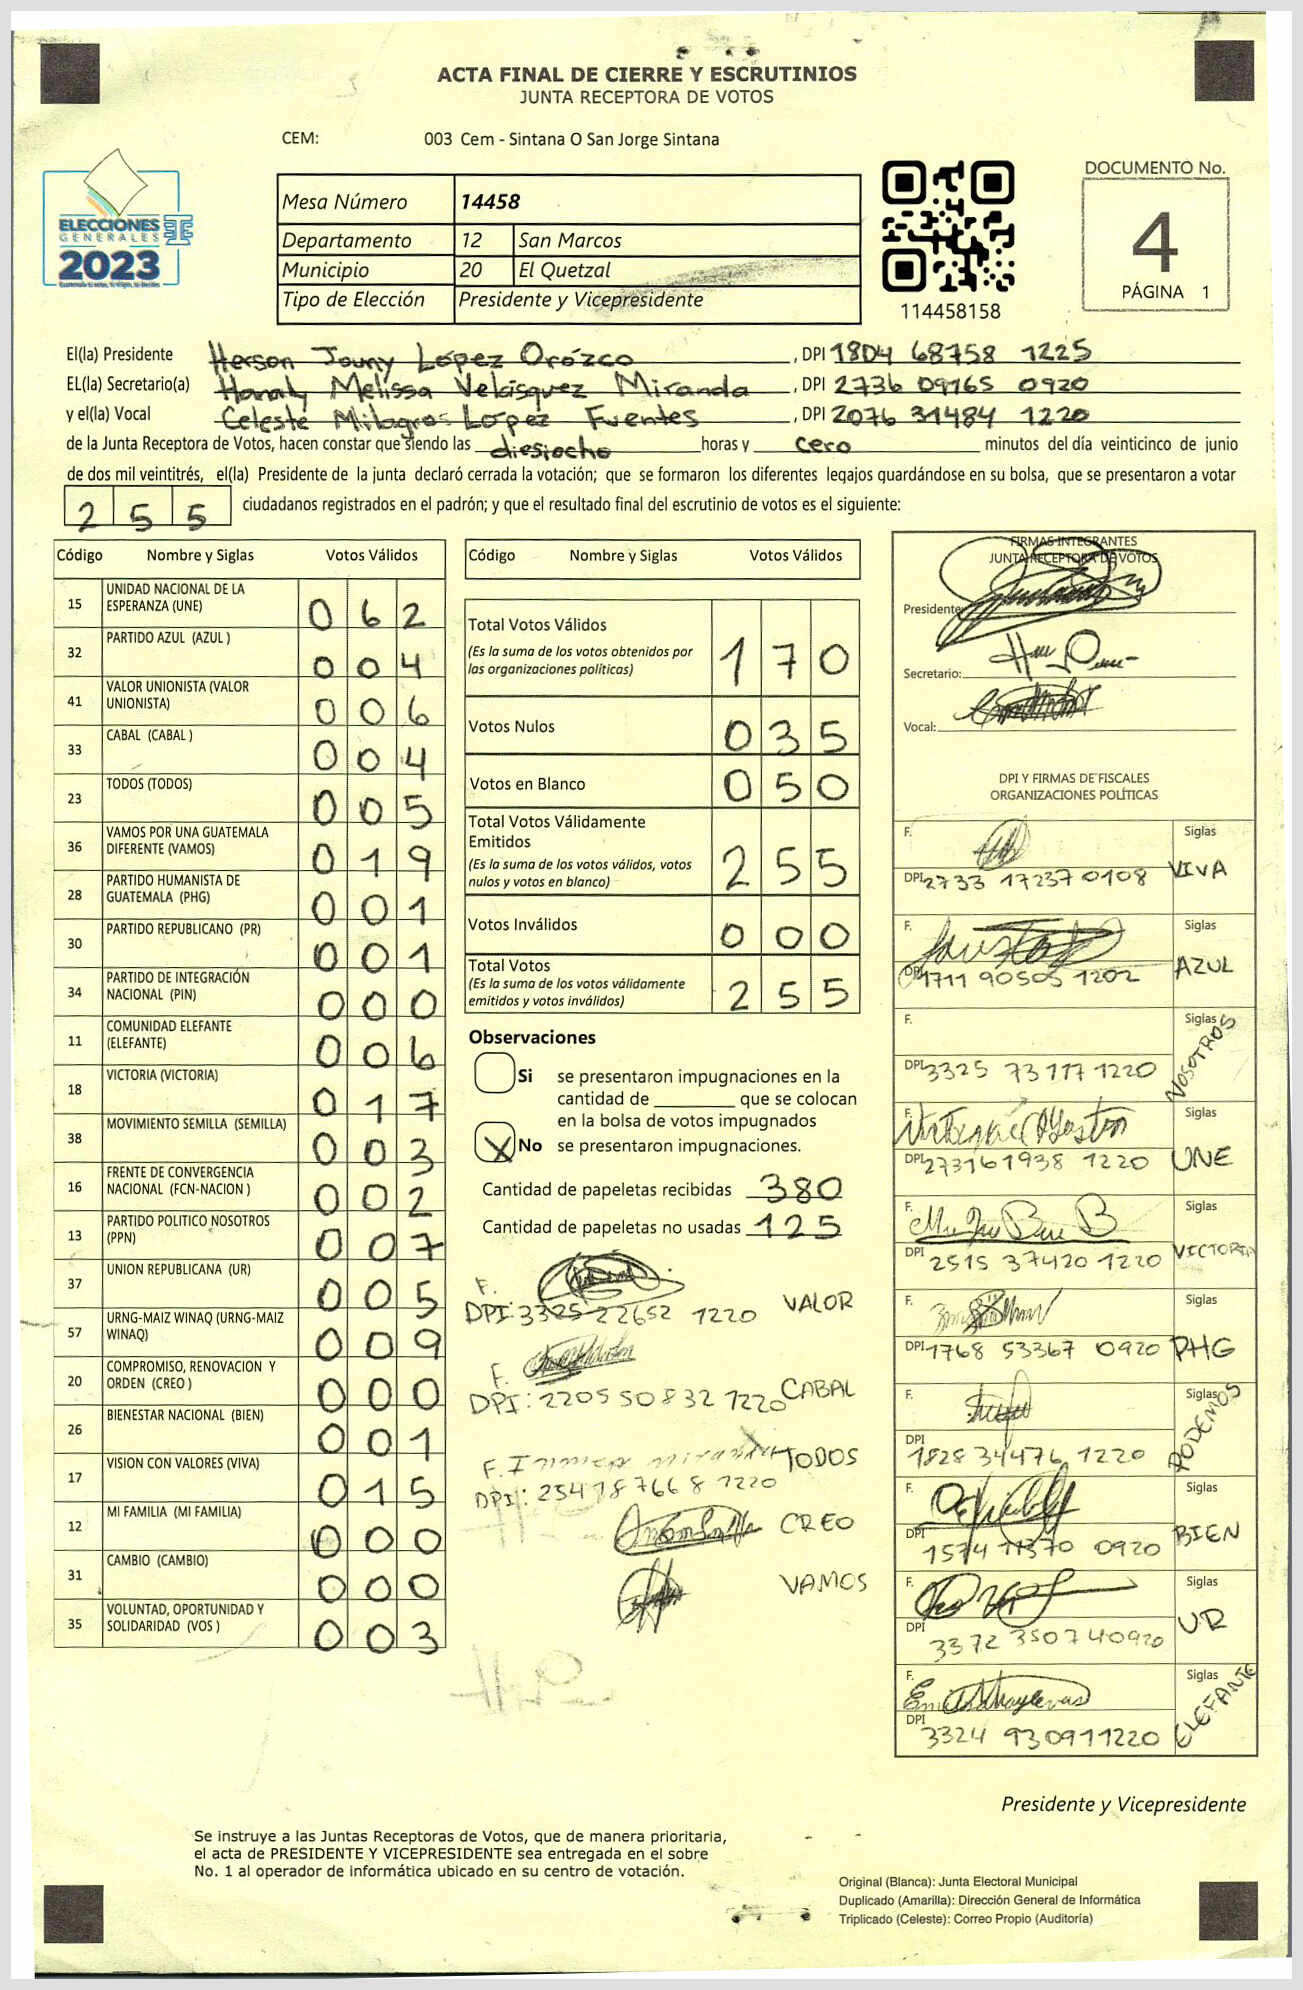 ACTA FINAL DE CIERRE Y ESCRUTINIOS
JUNTA RECEPTORA DE VOTOS
CEM: 003 Cem - Sintana O San Jorge Sintana
DOCUMENTO No.
4
PÁGINA 1
ELECCIONES
GENERALES
2023
Mesa Número 14458
Departamento 12 San Marcos
Municipio 20 El Quetzal
Tipo de Elección Presidente y Vicepresidente
114458158
El(la) Presidente Herson Jouny López Orózco, DPI 1804 68758 1225
EL(la) Secretario(a) Melissa Velásquez Miranda, DPI 2736 09165 0920
y el(la) Vocal Celeste Milagros López Fuentes, DPI 2076 31484 1220
de la Junta Receptora de Votos, hacen constar que siendo las diesiocho horas y cero minutos del día veinticinco de junio
de dos mil veintitrés, el(la) Presidente de la junta declaró cerrada la votación; que se formaron los diferentes legajos guardándose en su bolsa, que se presentaron a votar
255 ciudadanos registrados en el padrón; y que el resultado final del escrutinio de votos es el siguiente:
Código Nombre y Siglas Votos Válidos
15 UNIDAD NACIONAL DE LA ESPERANZA (UNE) 062
32 PARTIDO AZUL (AZUL ) 004
41 VALOR UNIONISTA (VALOR UNIONISTA) 006
33 CABAL (CABAL ) 004
23 TODOS (TODOS) 005
36 VAMOS POR UNA GUATEMALA DIFERENTE (VAMOS) 019
28 PARTIDO HUMANISTA DE GUATEMALA (PHG) 001
30 PARTIDO REPUBLICANO (PR) 001
34 PARTIDO DE INTEGRACIÓN NACIONAL (PIN) 000
11 COMUNIDAD ELEFANTE (ELEFANTE) 006
18 VICTORIA (VICTORIA) 017
38 MOVIMIENTO SEMILLA (SEMILLA) 003
16 FRENTE DE CONVERGENCIA NACIONAL (FCN-NACION ) 002
13 PARTIDO POLITICO NOSOTROS (PPN) 007
37 UNION REPUBLICANA (UR) 005
57 URNG-MAIZ WINAQ (URNG-MAIZ WINAQ) 009
20 COMPROMISO, RENOVACION Y ORDEN (CREO ) 000
26 BIENESTAR NACIONAL (BIEN) 001
17 VISION CON VALORES (VIVA) 015
12 MI FAMILIA (MI FAMILIA) 000
31 CAMBIO (CAMBIO) 000
35 VOLUNTAD, OPORTUNIDAD Y SOLIDARIDAD (VOS ) 003
Código Nombre y Siglas Votos Válidos
Total Votos Válidos 170
(Es la suma de los votos obtenidos por
las organizaciones políticas)
Votos Nulos 035
Votos en Blanco 050
Total Votos Válidamente
Emitidos 255
(Es la suma de los votos válidos, votos
nulos y votos en blanco)
Votos Inválidos 000
Total Votos 255
(Es la suma de los votos válidamente
emitidos y votos inválidos)
Observaciones
Si se presentaron impugnaciones en la
cantidad de ________ que se colocan
en la bolsa de votos impugnados
X No se presentaron impugnaciones.
Cantidad de papeletas recibidas 380
Cantidad de papeletas no usadas 125
F.
DPI: 3325 22652 1220 VALOR
F.
DPI: 2205 50832 1220 CABAL
F. TODOS
DPI: 2541876681220
CREO
VAMOS
FIRMAS INTEGRANTES
JUNTA RECEPTORA DE VOTOS
Presidente:
Secretario:
Vocal:
DPI Y FIRMAS DE FISCALES
ORGANIZACIONES POLÍTICAS
F. Siglas
DPI 2733 17237 0108 VIVA
F. Siglas
DPI 1711 90505 1202 AZUL
F. Siglas
DPI 3325 73117 1220 NOSOTROS
F. Siglas
DPI 2731 61938 1220 UNE
F. Siglas
DPI 2515 37420 1220 VICTORIA
F. Siglas
DPI 1768 53367 0920 PHG
F. Siglas
DPI 1828 34476 1220 PODEMOS
F. Siglas
DPI 1574 11370 0920 BIEN
F. Siglas
DPI 3372 35074 0920 UR
F. Siglas
DPI 3324 93091 1220 ELEFANTE
Presidente y Vicepresidente
Se instruye a las Juntas Receptoras de Votos, que de manera prioritaria,
el acta de PRESIDENTE Y VICEPRESIDENTE sea entregada en el sobre
No. 1 al operador de informática ubicado en su centro de votación.
Original (Blanca): Junta Electoral Municipal
Duplicado (Amarilla): Dirección General de Informática
Triplicado (Celeste): Correo Propio (Auditoría)